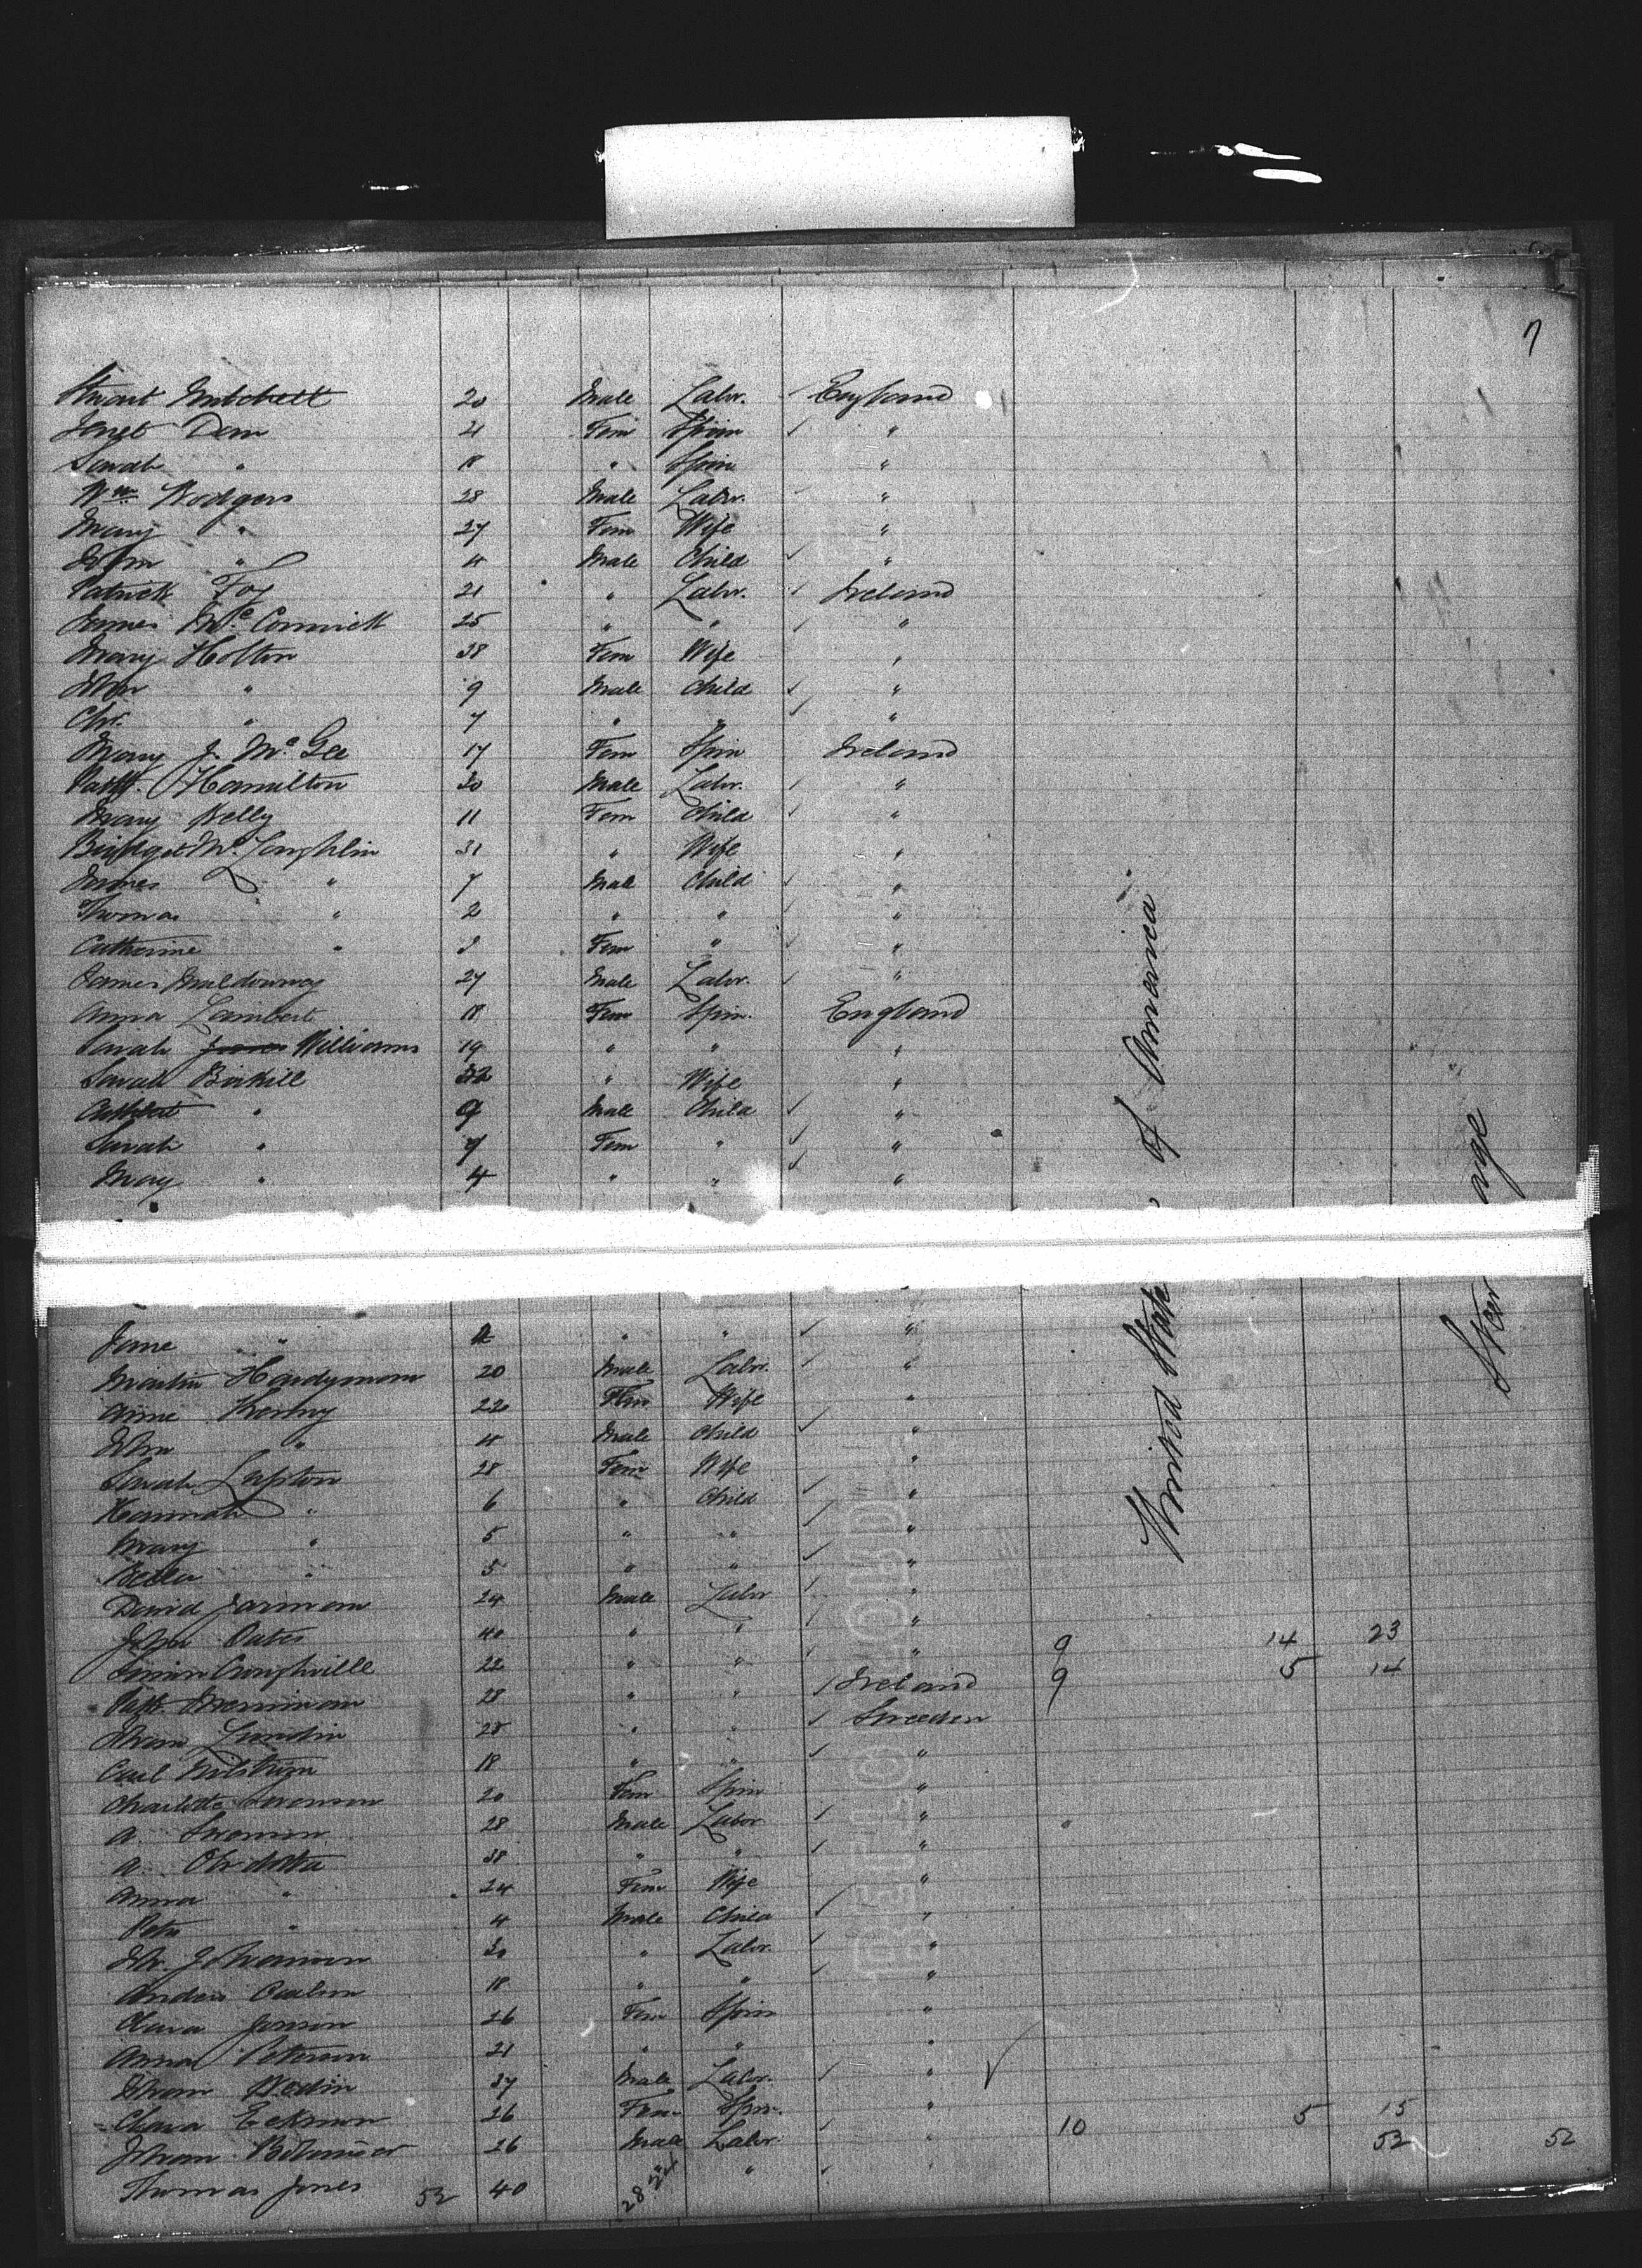 7
Stuart Mitchell 20 Male Labr. ✓ England
Janet Dem 21 Fem Spin ✓ "
Sarah " 18 " Spin "
Wm Rodgers 28 Male Labr. ✓ "
Mary " 27 Fem Wife "
John " 11 Male Child ✓ "
Patrick Foy 21 " Labr. ✓ Ireland
James McCormick 25 " " ✓ "
Mary Holton 38 Fem Wife "
John " 9 Male Child ✓ "
Chr. " 7 " " ✓ "
Mary J. McGee 17 Fem Spin Ireland
Patk. Hamilton 30 Male Labr. ✓ "
Mary Kelly 11 Fem Child ✓ "
Bridget McLoughlin 31 " Wife "
James " 7 Male Child ✓ "
Thomas " 2 " " ✓ "
Catherine " Fem " ✓ "
James Muldowney 27 Male Labr. ✓ "
Anna Lambert 18 Fem Spin. England
Sarah Williams 19 " " "
Sarah Birkill 32 " Wife "
Cuthbert " 9 Male Child ✓ "
Sarah " 7 Fem " ✓ "
Mary " 4 " " ✓ "
Jane " " " ✓ "
Martin Hardyman 20 Male Labr. ✓ "
Anne Kenny 22 Fem Wife "
John " 11 Male Child ✓ "
Sarah Lupton 28 Fem Wife "
Hannah " 6 " Child ✓ "
Mary " 5 " " ✓ "
Bella " 5 " " ✓ "
David Jarman 24 Male Labr ✓ "
John Oates 40 " " ✓ " 9 14 23
22 " " ✓ " 9 5 14
Patk. Merriman 28 " " ✓ Ireland
Johan Lundin 28 " " ✓ Sweeden
Carl 18 " " ✓ "
Charlotte Svenson 20 Fem Spin "
A. 28 Male Labor ✓ "
A. 38 " " ✓ "
Anna " 24 Fem Wife "
Petr " 4 Male Child ✓ "
Joh. Johanson 30 " Labr. ✓ "
Anders Carlson 18 " " ✓ "
Clara Jonson 26 Fem Spin "
Anna Peterson 21 " " "
Johan Hedin 37 Male Labr. ✓ "
Clara Eckman 26 Fem Spin. " 10 5 15
Johan 26 Male Labr. ✓ " 52 52
Thomas Jones 52 40 " " ✓
28 24
United States of America
Steerage